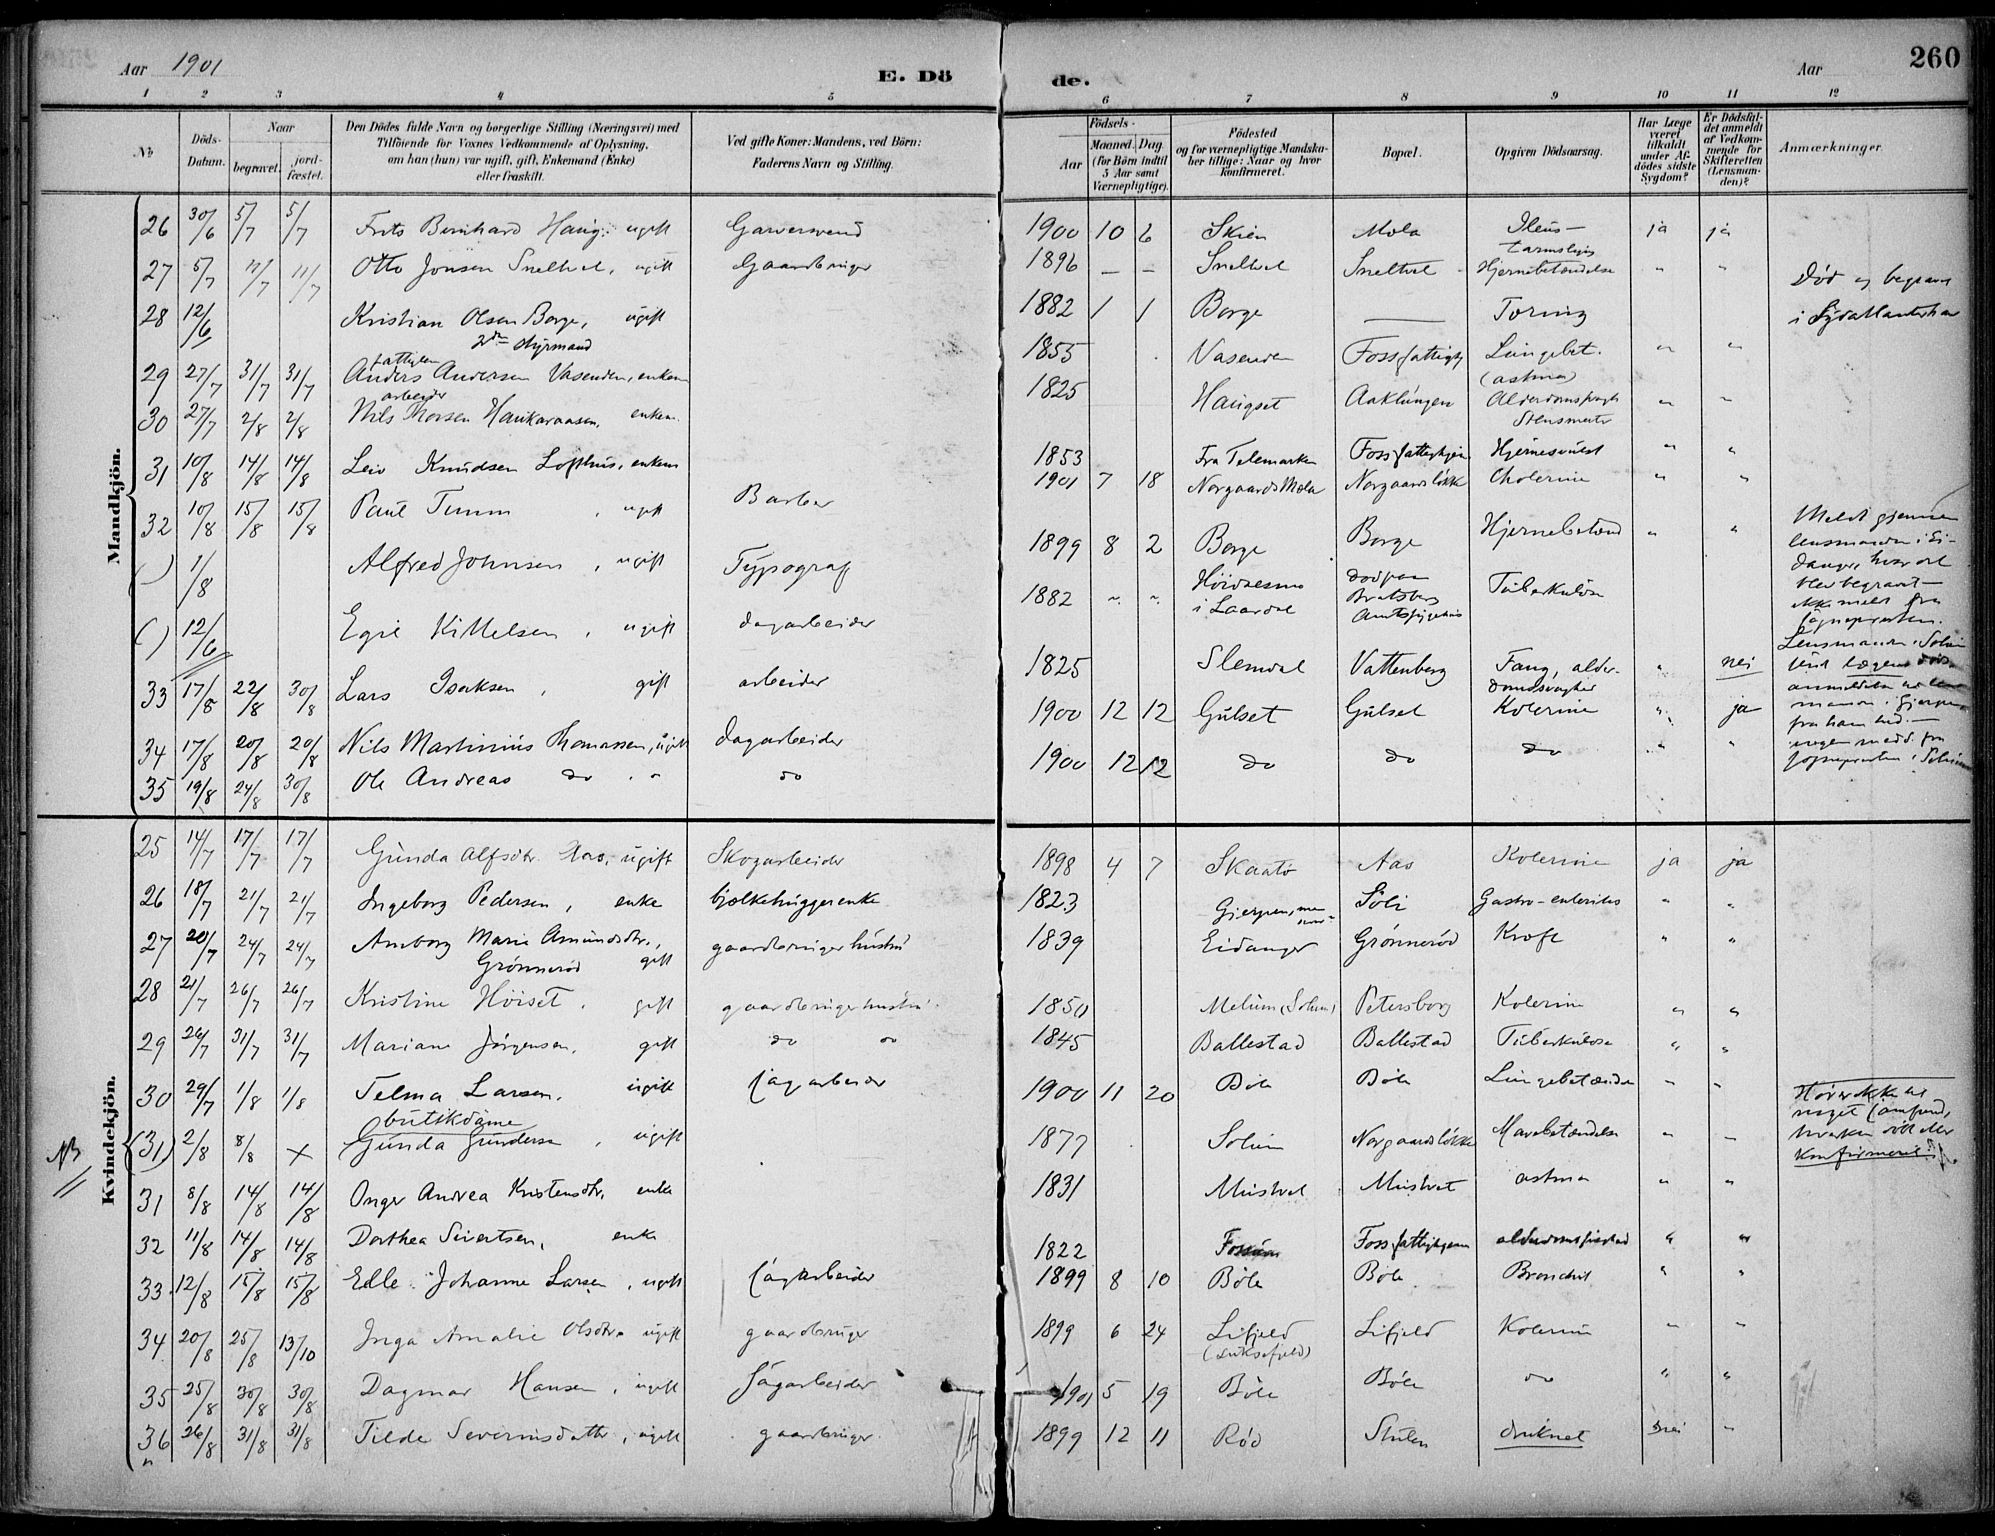 Aar 1901
E. Dö
de.
Aar
260
1 2 3 4 5 6 7 8 9 10 11 12
No
Döds-Datum.
Naar
begravet.
jord-fæstet.
Den Dödes fulde Navn og borgerlige Stilling (Næringsvei) med
Tilföiende for Voxnes Vedkommende af Oplysning,
om han (hun) var ugift, gift, Enkemand (Enke)
eller fraskilt.
Ved gifte Koner: Mandens, ved Börn:
Faderens Navn og Stilling.
Födsels-
Aar
Maaned. Dag.
(for Börn indtil
5 Aar samt
Værnepligtige).
Födested
og for værnepligtige Mandska-
ber tillige: Naar og hvor
Konfirmeret.
Bopæl.
Opgiven Dödsaarsag.
Har Læge
været
tilkaldt
under Af-
dödes sidste
Sygdom?
Er Dödsfal-
det anmeldt
af Vedkom-
mende for
Skifteretten
(Lensman-
den)?
Anmærkninger.
Mandkjön.
26 30/6 5/7 5/7 Frits Bernhard Haug, ugift Garversvend 1900 10 6 Skien Mola Ileus- ja ja
27 5/7 11/7 11/7 Otto Jonsen Sneltvet, ugift Gaardbruger 1896 – – Sneltvet Sneltvet Hjernebetændelse " "
28 12/6 Kristian Olsen Borge, ugift 1882 1 1 Borge — Død og begravet
2den Styrmand i Sydatlanterhav
29 27/7 31/7 31/7 Anders Andersen Vasenden, enkem 1855 Vasenden Foss fattigh Lungebet. " "
(astma)
arbeider
30 27/7 2/8 2/8 Nils Thorsen Haukaraasen, enkem. 1825 Haugset Aaklungen " "
31 10/8 14/8 14/8 Leiv Knudsen Lofthus, enkem 1853 Fra Telemarken Foss fattighjem Hjernesvulst " "
32 10/8 15/8 15/8 Paul Timm, ugift Barber 1901 7 18 Norgaards Mola Norgaardsløkke Cholerine " "
(–) 1/8 Alfred Johnsen, ugift Typograf 1899 8 2 Borge Borge Hjernebetænd " "
Meldt gjennem
lensmanden i Ei-
danger, hvor det
blev begravet –
ikke meldt fra
sognepresten.
( ) 12/6 Egil Kittelsen, ugift dagarbeider 1882 " " i Laardal Bratsberg Amtssygehus Tuberkulose
33 17/8 22/8 30/8 Lars Isaksen, gift arbeider 1825 Slemdal Vattenberg Fang, alder-domssvaghed " nei
34 17/8 20/8 20/8 Nils Martinius Thomassen, ugift dagarbeider 1900 12 12 Gulset Gulset Kolerine " ja
35 19/8 24/8 30/8 Ole Andreas do " do 1900 12 12 do do do " "
Kvindekjön.
25 14/7 17/7 17/7 Gunda Alfsdtr. Aas, ugift Skogarbeider 1898 4 7 Skaatø Aas Kolerine ja ja
26 18/7 21/7 21/7 Ingeborg Pedersen, enke bjelkehuggerenke 1823 Gjerpen, Søli Gastro-enterites " "
27 20/7 24/7 24/7 Anborg Marie Amundsdtr., gaardbrugerhustru 1839 Eidanger Grønnerød Kræft " "
Grønnerød gift
28 21/7 26/7 26/7 Kristine Høiset, gift gaardbrugerhustru 1850 Melum (Solum) Petersborg Kolerine " "
29 26/7 31/7 31/7 Mariane Jørgensen, gift do do 1845 Ballestad Ballestad Tuberkulose " "
30 29/7 1/8 1/8 Telma Larsen, ugift Sagarbeider 1900 11 20 Böle Böle Lungebetændelse " "
butikdame
NB (31) 2/8 8/8 × Gunda Gundersen, ugift 1877 Solum Norgaardsløkke Mavebetændelse " –
Hører ikke til
noget samfund,
hverken døbt eller
konfirmeret.
31 8/8 14/8 14/8 Inger Andrea Kristensdtr. enke 1831 Mustvet Mustvet astma " "
32 11/8 14/8 14/8 Dorthea Sivertsen, enke 1822 Fossum Foss fattighjem " "
33 12/8 15/8 15/8 Edle Johanne Larsen, ugift Sagarbeider 1899 8 10 Böle Böle Bronchit " "
34 20/8 25/8 13/10 Inga Amalie Olsdtr. ugift gaardbruger 1899 6 24 Lifjeld Lifjeld Kolerine " "
(Luksefjeld)
35 25/8 30/8 30/8 Dagmar Hansen, ugift Sagarbeider 1901 5 19 Böle Böle do " "
36 26/8 31/8 31/8 Tilde Severinsdatter, ugift gaardbruger 1899 12 11 Rød Stulen druknet nei "